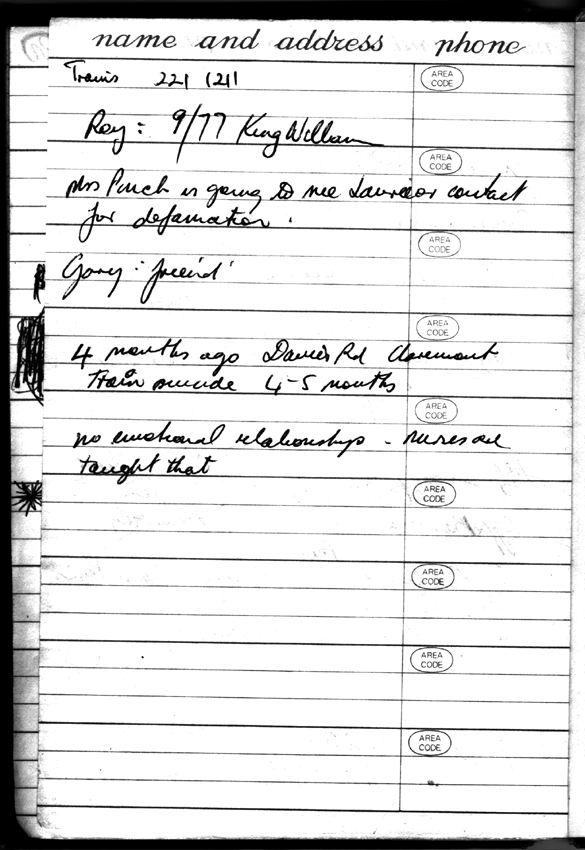 name and address phone
Travis 221 1211 AREA CODE
Roy: 9/77 King William
AREA CODE
Mrs Punch is going to see Lawrie or contact
for defamation.
AREA CODE
Gary: 'freind'
AREA CODE
4 months ago Davies Rd Claremont
Train suicide 4-5 months
AREA CODE
no emotional relationships - nurses are
taught that
AREA CODE
AREA CODE
AREA CODE
AREA CODE